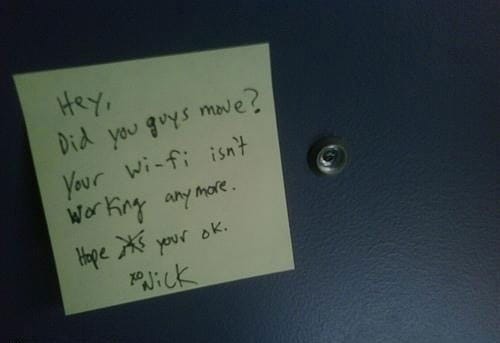 Hey,
Did you guys move?
Your Wi-fi isn't
Working anymore.
Hope your ok.
xo Nick